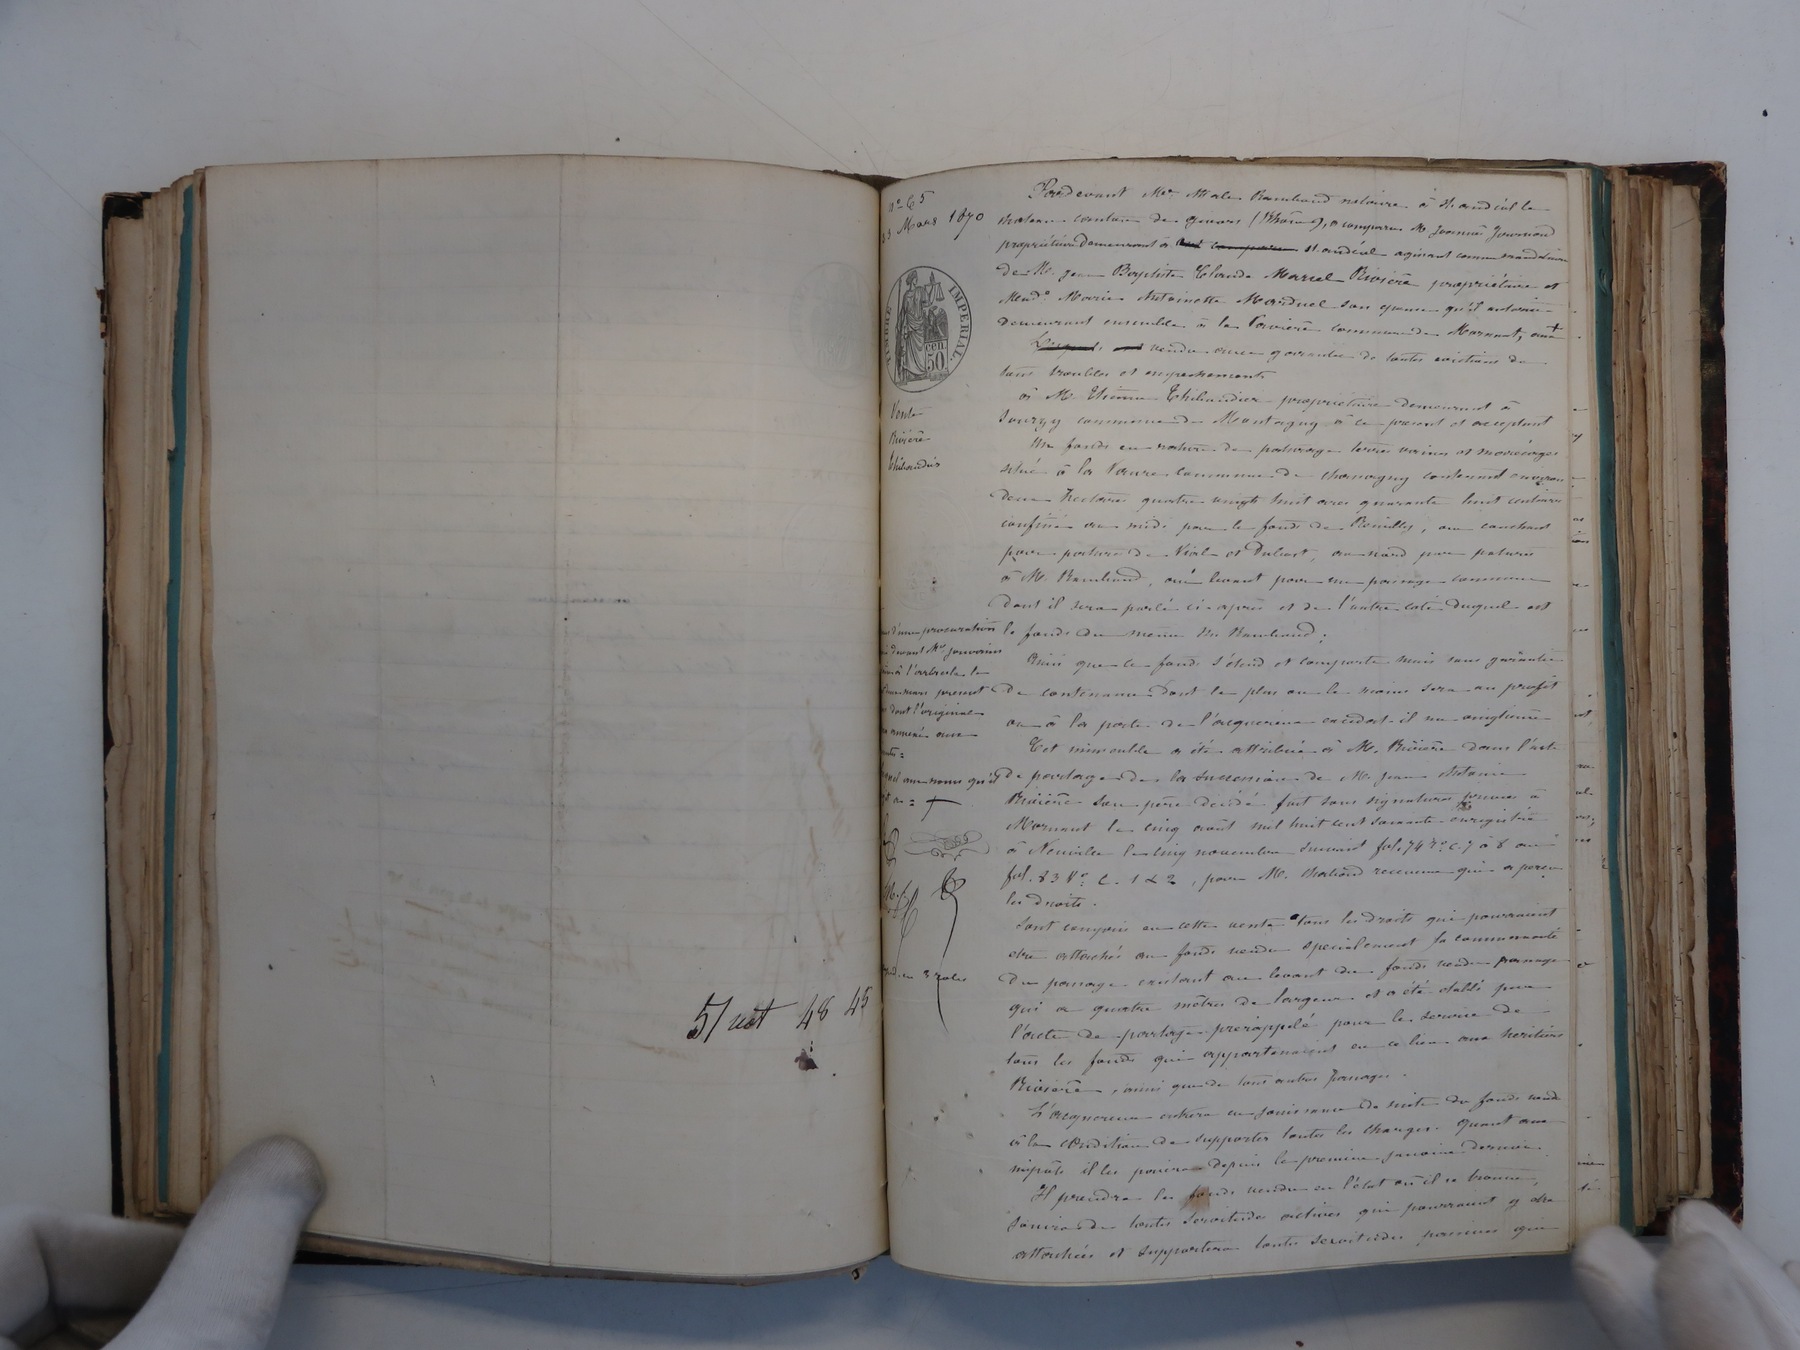 51 rest 48 45
nº 65
23 Mars 1870
TIMBRE IMPERIAL.
50 cen
Vente
Rivière
Thibaudier
d'une procuration
devant Me
à l'arbresle le
mars présent
dont l'original
annexé aux
aux noms qu'il
en 3 roles
Pardevant Me Rambaud notaire à St andéol le
chateau canton de givors (Rhône), a comparu M. Joannès Journoud
propriétaire demeurant à St andéol agissant comme mandataire
de M. Jean Baptiste Claude Marcel Rivière propriétaire et
Made Marie Antoinette Marduel son épouse qu'il autorise
demeurant ensemble à la commune de Mornant,
vendu avec garantie de toutes evictions de
tous troubles et empechements
à M. Etienne Thibaudier propriétaire demeurant à
Sourzy commune de Montagny à ce présent et acceptant
Un fonds en nature de paturage terres vaines et
situé à la commune de chassagny contenant environ
deux hectares quatre vingt huit ares quarante huit centiares
confiné au midi par le fonds de, au couchant
par pature de et, au nord par patures
à M. Rambaud, au levant par un passage commun
dont il sera parlé ci-après et de l'autre coté duquel est
le fonds du même Mr Rambaud;
Ainsi que ce fonds s'étend et comporte mais sans garantie
de contenance dont le plus ou le moins sera au profit
ou à la perte de l'acquereur excedat-il un vingtième
Cet immeuble a été attribué à M. Rivière dans l'acte
de partage de la succession de M. Jean Antoine
Rivière son père décédé fait sous signatures privées à
Mornant le cinq août mil huit cent soixante enregistré
à le cinq novembre suivant fol. 74 rº c. 7 à 8 au
fol. 83 Vº c. 1 & 2, par M. receveur qui a perçu
les droits.
Sont compris en cette vente tous les droits qui pourraient
etre attachés au fonds vendu specialement la communauté
du passage existant au levant du fonds vendu passage
qui a quatre mètres de largeur et a été etabli par
l'acte de partage prérappelé pour le service de
tous les fonds qui appartenaient en ce lieu aux heritiers
Rivière, ainsi que de tous autres passages.
L'acquereur entrera en jouissance de suite du fonds vendu
à la condition de supporter toutes les charges. quant aux
impôts il les paiera depuis le premier janvier dernier.
Il prendra les fonds vendu en l'état où il se trouve,
jouira de toutes servitudes actives qui pourraient y etre
attachées et supportera toutes servitudes passives qui